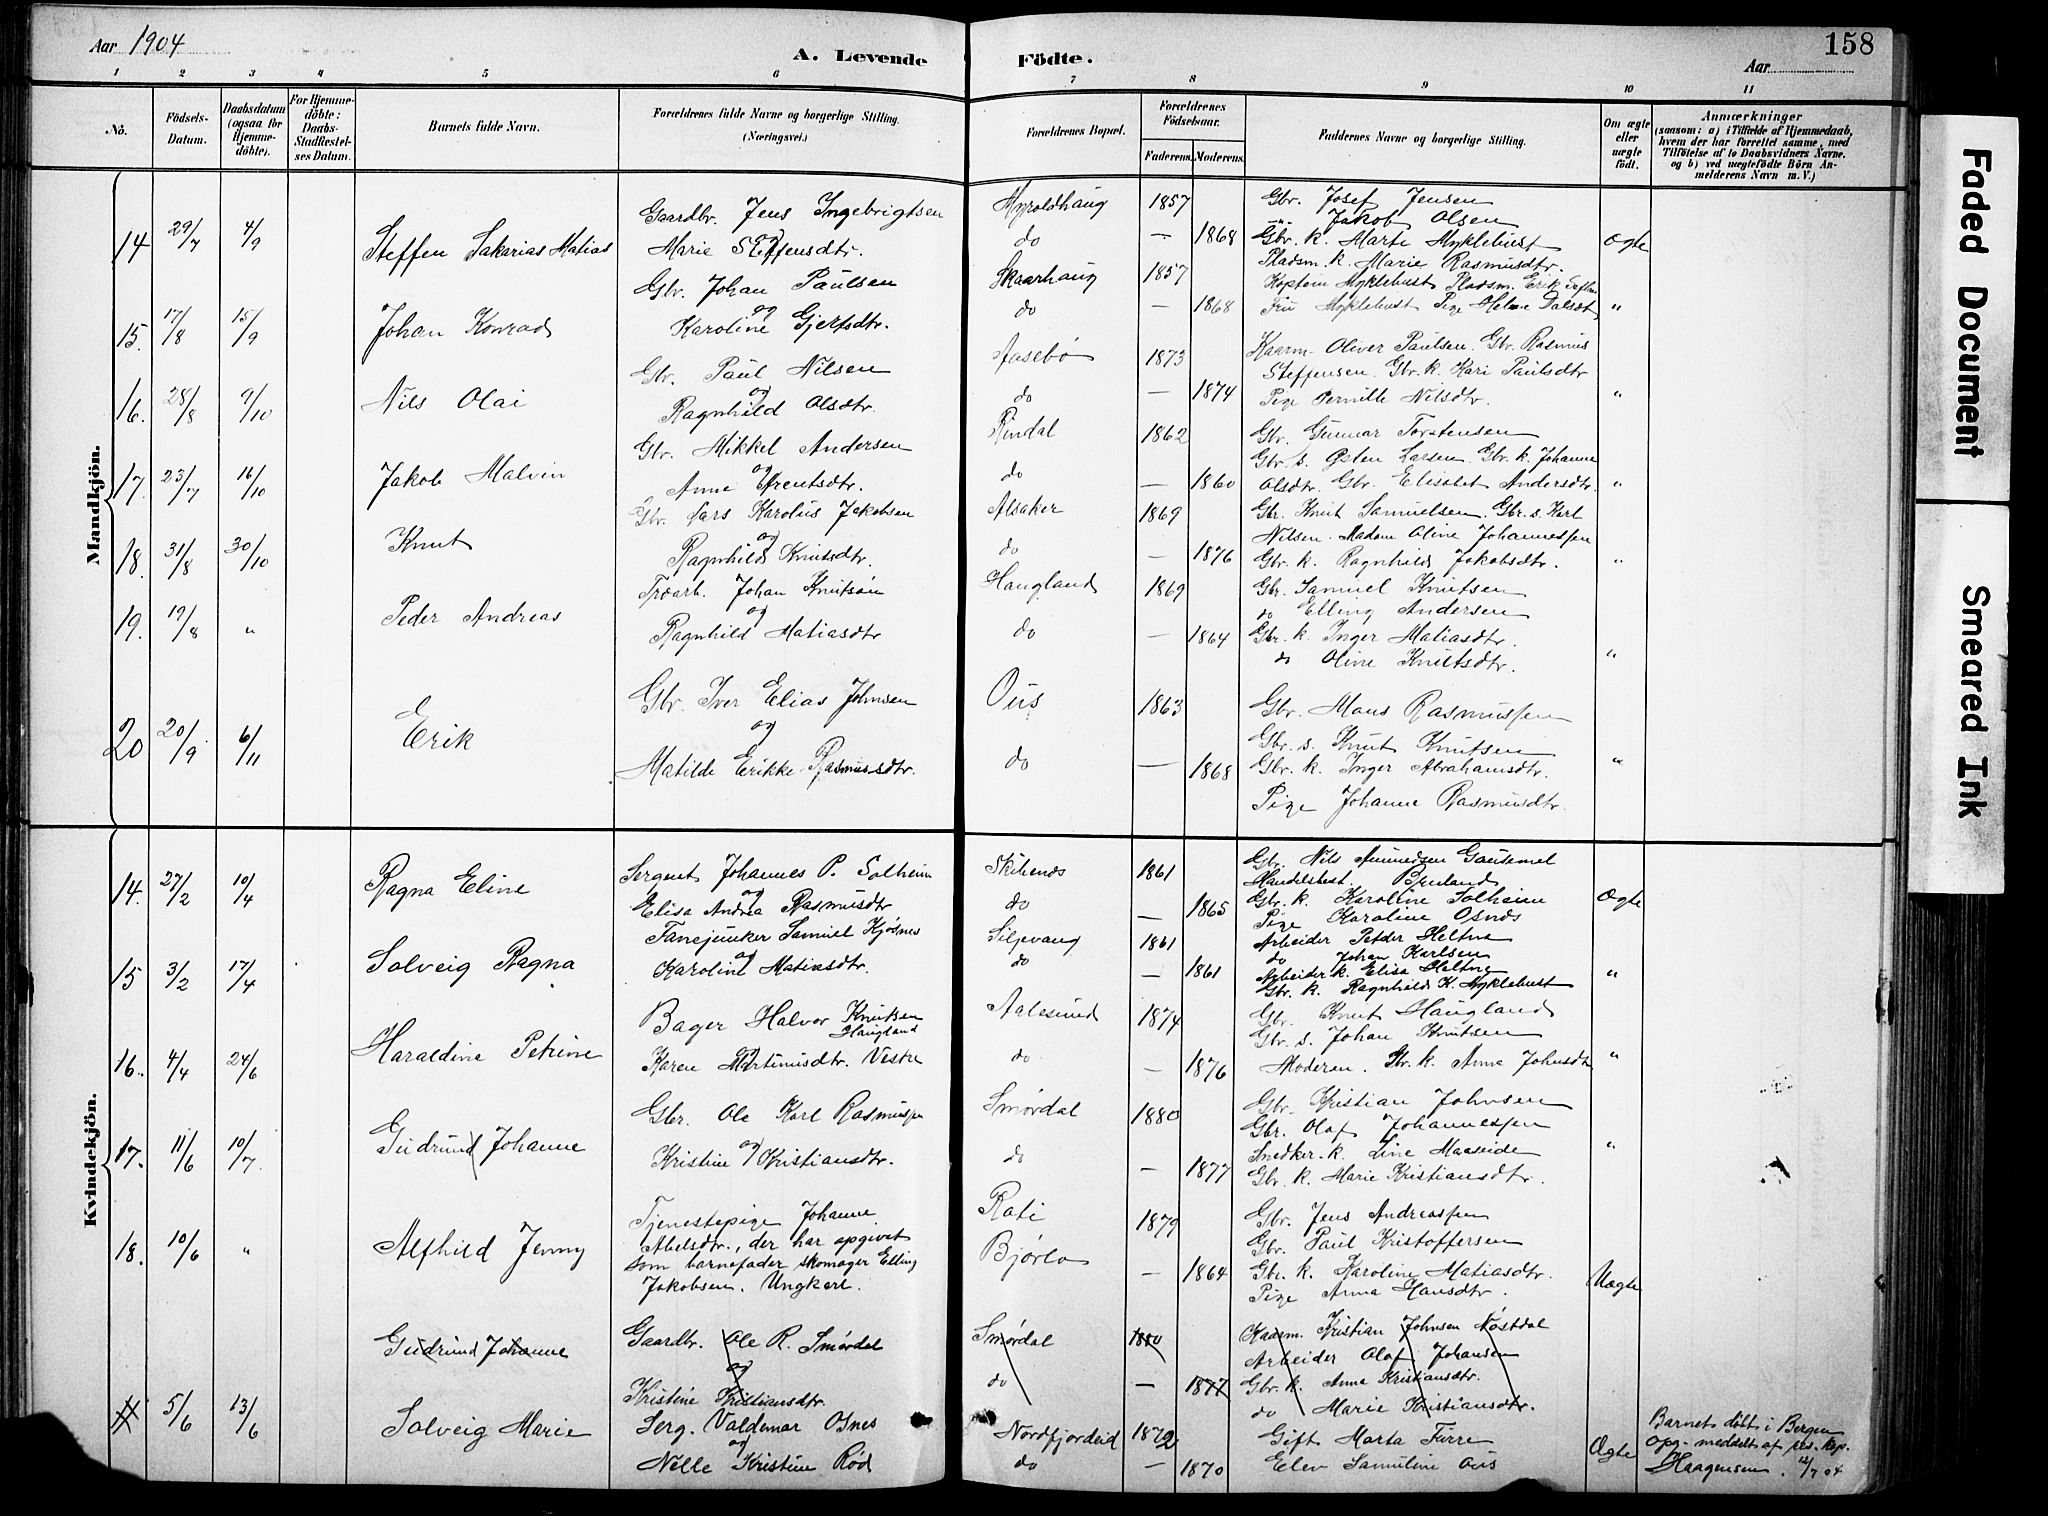 Aar 1904
A. Levende Födte.
158
Aar
1 2 3 4 5 6 7 8 9 10 11
No.
Födsels-Datum.
Daabsdatum (ogsaa for Hjemmedöbte).
For Hjemmedöbte: Daabs-Stadfæstelses Datum.
Barnets fulde Navn.
Forældrenes fulde Navne og borgerlige Stilling.
(Næringsvei.)
Forældrenes Bopæl.
Forældrenes Födselsaar.
Faderens. Moderens.
Faddernes Navne og borgerlige Stilling.
Om ægte eller uægte født.
Anmærkninger
(saasom: a) i Tilfælde af Hjemmedaab,
hvem der har forrettet samme, med
Tilföielse af to Daabsvidners Navne.
og b) ved uægtefödte Börn Anmelderens Navn m. V.)
Mandkjön.
14 29/7 4/9 Steffen Sakarias Matias
Gaardbr. Jens Ingebrigtsen
og
Marie Steffensdtr.
Myroldhaug 1857
do — 1868
Gbr. Josef Jensen
-"- Jakob Olsen
Gbr. k. Marte Myklebust
Pladsm. k. Marie Rasmusdtr.
Ægte
15. 17/8 15/9 Johan Konrad
Gbr. Johan Paulsen
og
Karoline Gjertsdtr.
Skaarhaug 1857
do — 1868
Kaptein Myklebust Pladsm. Erik
Fru Myklebust Pige
"
16. 28/8 9/10 Nils Olai
Gbr. Paul Nilsen
og
Ragnhild Olsdtr.
Aasebø 1873
do — 1874
Kaarm. Oliver Paulsen. Gbr. Rasmus
Steffensen. Gbr. k. Kari Paulsdtr
Pige Pernille Nilsdtr.
"
17. 23/7 16/10 Jakob Malvin
Gbr. Mikkel Andersen
og
Anne Arentsdtr.
Rindal 1862
do — 1860
Gbr. Gunnar Torstensen
Gbr. s. Østen Larsen. Gbr. k. Johanne
Olsdtr. Gbr. Elisabet Andersdtr.
"
18. 31/8 30/10 Knut
Gbr. Lars Karolus Jakobsen
og
Ragnhild Knutsdtr.
Alsaker 1869
do — 1876
Gbr. Knut Samuelsen. Gbr. s. Karl
Nilsen. Madam Oline Johannessen
Gbr. k. Ragnhild Jakobsdtr.
"
19. 19/8 " Peder Andreas
Træarb. Johan Knutsøn
og
Ragnhild Matiasdtr
Haugland 1869
do — 1864
Gbr. Samuel Knutsen
do Elling Andersen
Gbr. k. Inger Matiasdtr.
do Oline Knutsdtr.
"
20 20/9 6/11 Erik
Gbr. Iver Elias Johnsen
og
Matilde Erikke Rasmusdtr.
Ous 1863
do — 1868
Gbr. Mons Rasmussen
Gbr. s. Knut Knutsen
Gbr. k. Inger Abrahamsdtr.
Pige Johanne Rasmusdtr.
"
Kvindekjön.
14. 27/2 10/4 Ragna Eline
Sergent Johannes P. Solheim
og
Elisa Andrea Rasmusdtr
1861
do — 1865
Gbr. Nils Amundsen Gausemel
Handelsbest.
Gbr. k. Karoline Solheim
Pige Karoline Osnes
Ægte
15 3/2 17/4 Solveig Ragna
Fanejunker Samuel Kjøsnes
og
Karoline Matiasdtr.
Siljevang 1861
do — 1861
Arbeider Petder
do Johan Karlsen
Arbeider k. Elisa
Gbr. k. Ragnhild K. Myklebust
"
16. 4/4 24/6 Haraldine Petrine
Bager Halvor Knutsen
Haugland
og
Karen Martinusdtr. Vestre
Aalesund 1874
do — 1876
Gbr. Knut Haugland
Gbr. s. Johan Knutsen
Moderen. Gbr. k. Anna Johnsdtr
"
17. 11/6 10/7. Gudrund Johanne
Gbr. Ole Karl Rasmussen
og
Kristine Kristiansdtr.
Smørdal 1880
do — 1877
Gbr. Kristian Johnsen
Gbr. Olaf Johannessen
Snedker. k. Line Maaseide
Gbr. k. Marie Kristiansdtr.
"
18. 10/6 " Alfhild Jenny
Tjenestepige Johanne
Abelsdtr., der har opgivet
som barnefader skomager Elling
Jakobsen. Ungkarl.
Roti 1879
Bjørlo — 1864
Gbr. Jens Andreassen
Gbr. Paul Kristoffersen
Gbr. k. Karoline Matiasdtr.
Pige Anna Hansdtr.
Uægte
Gudrund Johanne
Gaardbr. Ole R. Smørdal
og
Kristine Kristiansdtr.
Smørdal 1880
do — 1877
Kaarm. Kristian Johnsen Nøstdal
Arbeider Olaf Johansen
Gbr. k. Anna Kristiansdtr.
do Marie Kristiansdtr.
5/6 13/6 Solveig Marie
Serg. Valdemar Osnes
og
Nelle Kristine Rød
Nordfjordeid 1872
do — 1870
Gift Marta Furre
Elev Samuline Ous
Ægte
Barnet døbt i Bergen
opg. meddelt af res. kap.
Haagensen. 12/7 04
Faded Document
Smeared Ink